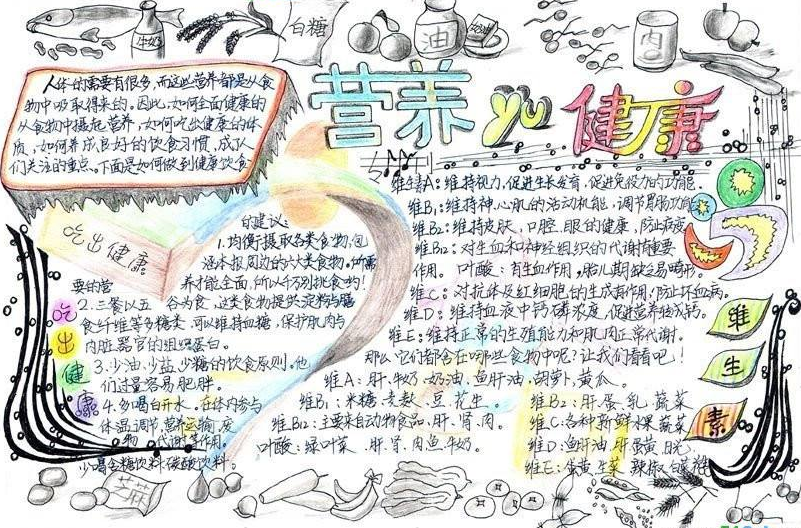 牛奶
白糖
油
肉
营养 yu 健康
人体的需要有很多,而这些营养都是从食
物中吸取得来的。因此,如何全面健康的
从食物中摄取营养,如何吃出健康的体
质,如何养成良好的饮食习惯,成人
们关注的重点。下面是如何做到健康饮食
的建议:
吃出健康
1.均衡摄取各类食物,包
涵本报周边的六大类食物。所需
要的营
养才能全面,所以千万别挑食物!
2.三餐以五谷为食,这类食物提供淀粉与膳
食纤维等多糖类,可以维持血糖,保护肌肉与
内脏器官的组织蛋白。
3.少油、少盐、少糖的饮食原则。他
们过量容易肥胖。
4.多喝白开水,在体内参与
体温调节,营养运输,废
物代谢等作用。
少喝含糖饮料碳酸饮料。
吃出健康
维生素A:维持视力,促进生长发育,促进免疫力的功能。
维B₁:维持神、心肌的活动机能,调节胃肠功能
维B₂:维持皮肤、口腔、眼的健康,防止病变
维B₁₂:对生血和神经组织的代谢有重要
作用。叶酸:有生血作用,胎儿期缺会畸形。
维C:对抗体及红细胞的生成有作用,防止坏血病。
维D:维持血液中钙磷浓度,促进营养的成钙。
维E:维持正常的生殖能力和肌肉正常代谢。
那么它们都含在哪些食物中呢?让我们看看吧!
维A:肝、牛奶、奶油、鱼肝油、胡萝卜、黄瓜。
维B₁:米糠、麦麸、豆、花生。
维B₂:肝、蛋、乳、蔬菜
维B₁₂:主要来自动物食品、肝、肾、肉。
维C:各种新鲜水果蔬菜
叶酸:绿叶菜、肝、肾、肉、鱼、牛奶。
维D:鱼肝油、肝、蛋黄、
维E:蛋黄、生菜、辣椒、
维生素
芝麻